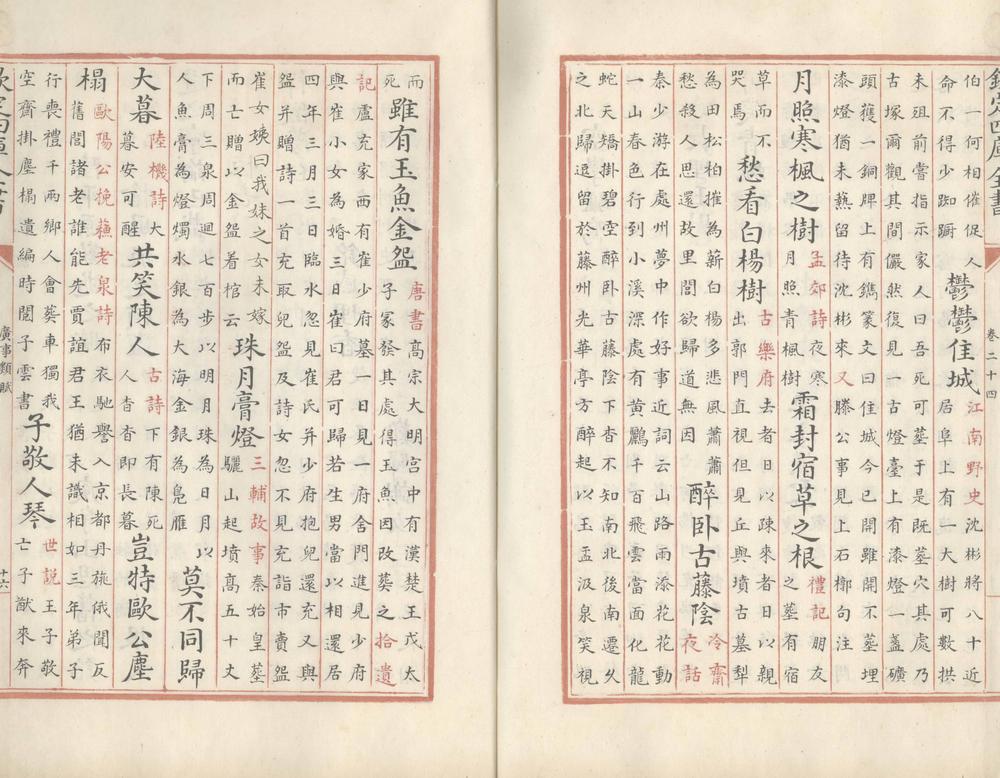 欽定四庫全書
卷二十四
伯一何相催促人
命不得少踟蹰
鬱鬱佳城
江南野史沈彬將八十近
居阜上有一大樹可數拱
未殂前嘗指示家人曰吾死可塟于是既塟穴其處乃
古塚爾觀其間儼然復見一古燈臺上有漆燈一盞礦
頭獲一銅牌上有鐫篆文曰佳城今已開雖開不塟埋
漆燈猶未爇留待沈彬來又滕公事見上石槨句注
月照寒楓之樹
孟郊詩夜寒
月照青楓樹
霜封宿草之根
禮記朋友
之墓有宿
草而不
哭焉
愁看白楊樹
古樂府去者日以疎來者日以親
出郭門直視但見丘與墳古墓犁
為田松柏摧為薪白楊多悲風蕭蕭
愁殺人思還故里閭欲歸道無因
醉卧古藤陰
冷齋
夜話
秦少游在處州夢中作好事近詞云山路雨添花花動
一山春色行到小溪深處有黄鸝千百飛雲當面化龍
蛇夭矯掛碧空醉卧古藤陰下杳不知南北後南遷乆
之北歸逗留於藤州光華亭方醉起以玉盂汲泉笑視
而
死
雖有玉魚金盌
唐書高宗大明宫中有漢楚王戊太
子冡發其處得玉魚因改葬之拾遺
記盧充家西有崔少府墓一日見一府舍門進見少府
與崔小女為婚三日崔曰君可歸若生男當以相還居
四年三月三日臨水忽見崔氏并少府抱兒還充又與
盌并贈詩一首充取兒盌及詩女忽不見充詣市賣盌
崔女姨曰我妹之女未嫁
而亡贈以金盌着棺云
珠月膏燈
三輔故事秦始皇墓
驪山起墳高五十丈
下周三泉周廻七百步以明月珠為日月以
人魚膏為燈燭水銀為大海金銀為鳬雁
莫不同歸
大暮
陸機詩大
暮安可醒
共笑陳人
古詩下有陳死
人杳杳即長暮
豈特歐公塵
榻
歐陽公挽蘓老泉詩布衣馳譽入京都丹旐俄聞反
舊閭諸老誰能先賈誼君王猶未識相如三年弟子
行喪禮千兩鄉人會葬車獨我
空齋掛塵榻遺編時閲子雲書
子敬人琴
世説王子敬
亡子猷來奔
欽定四庫全書
廣事類賦
十六